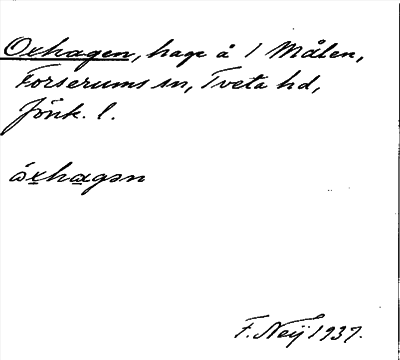 Oxhagen, hage å 1 Målen,
Forserums sn, Tveta hd,
Jönk. l.
óxhagən
F. Neij 1937.